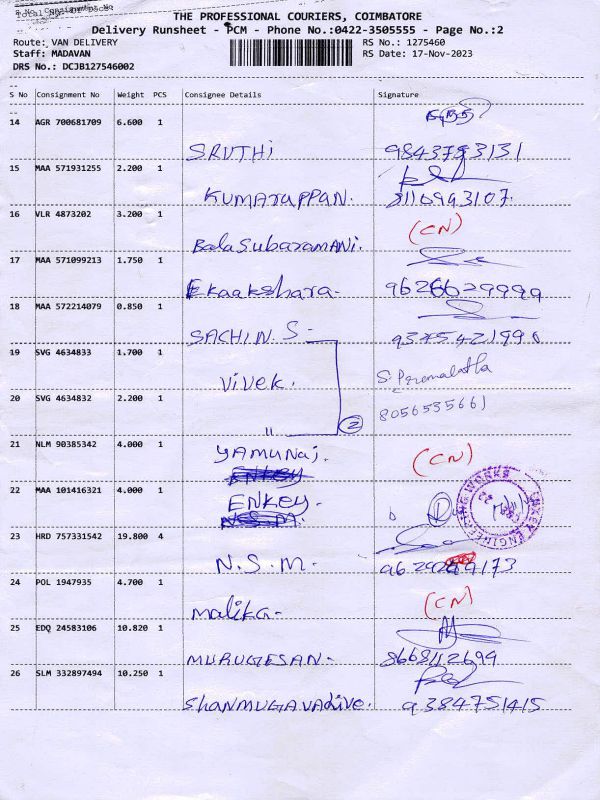 THE PROFESSIONAL COURIERS, COIMBATORE
Delivery Runsheet - PCM - Phone No.:0422-3505555 - Page No.:2
Route: VAN DELIVERY RS No.: 1275460
Staff: MADAVAN RS Date: 17-Nov-2023
DRS No.: DCJB127546002
S No Consignment No Weight PCS Consignee Details Signature
14 AGR 700681709 6.600 1
SRUTHI 9843753131
15 MAA 571931255 2.200 1
KUMARAPPAN. 8110943107.
16 VLR 4873202 3.200 1 (CN)
BalaSubaramANi.
17 MAA 571099213 1.750 1
Ekaakshara- 9626629999
18 MAA 572214079 0.850 1
SACHIN. S- 9375421990
19 SVG 4634833 1.700 1
Vivek. S. Premalatha
20 SVG 4634832 2.200 1 8056535661
" 2
21 NLM 90385342 4.000 1
YAMUNAJ. (CN)
22 MAA 101416321 4.000 1
ENKEY
ENKEY ENGINEERING WORKS
23 HRD 757331542 19.800 4
N.S.M-
24 POL 1947935 4.700 1 (CN)
Malika-
25 EDQ 24583106 10.820 1
MURUGESAN- 8668112699
26 SLM 332897494 10.250 1
ShANMUGAVAdive. 9384751415